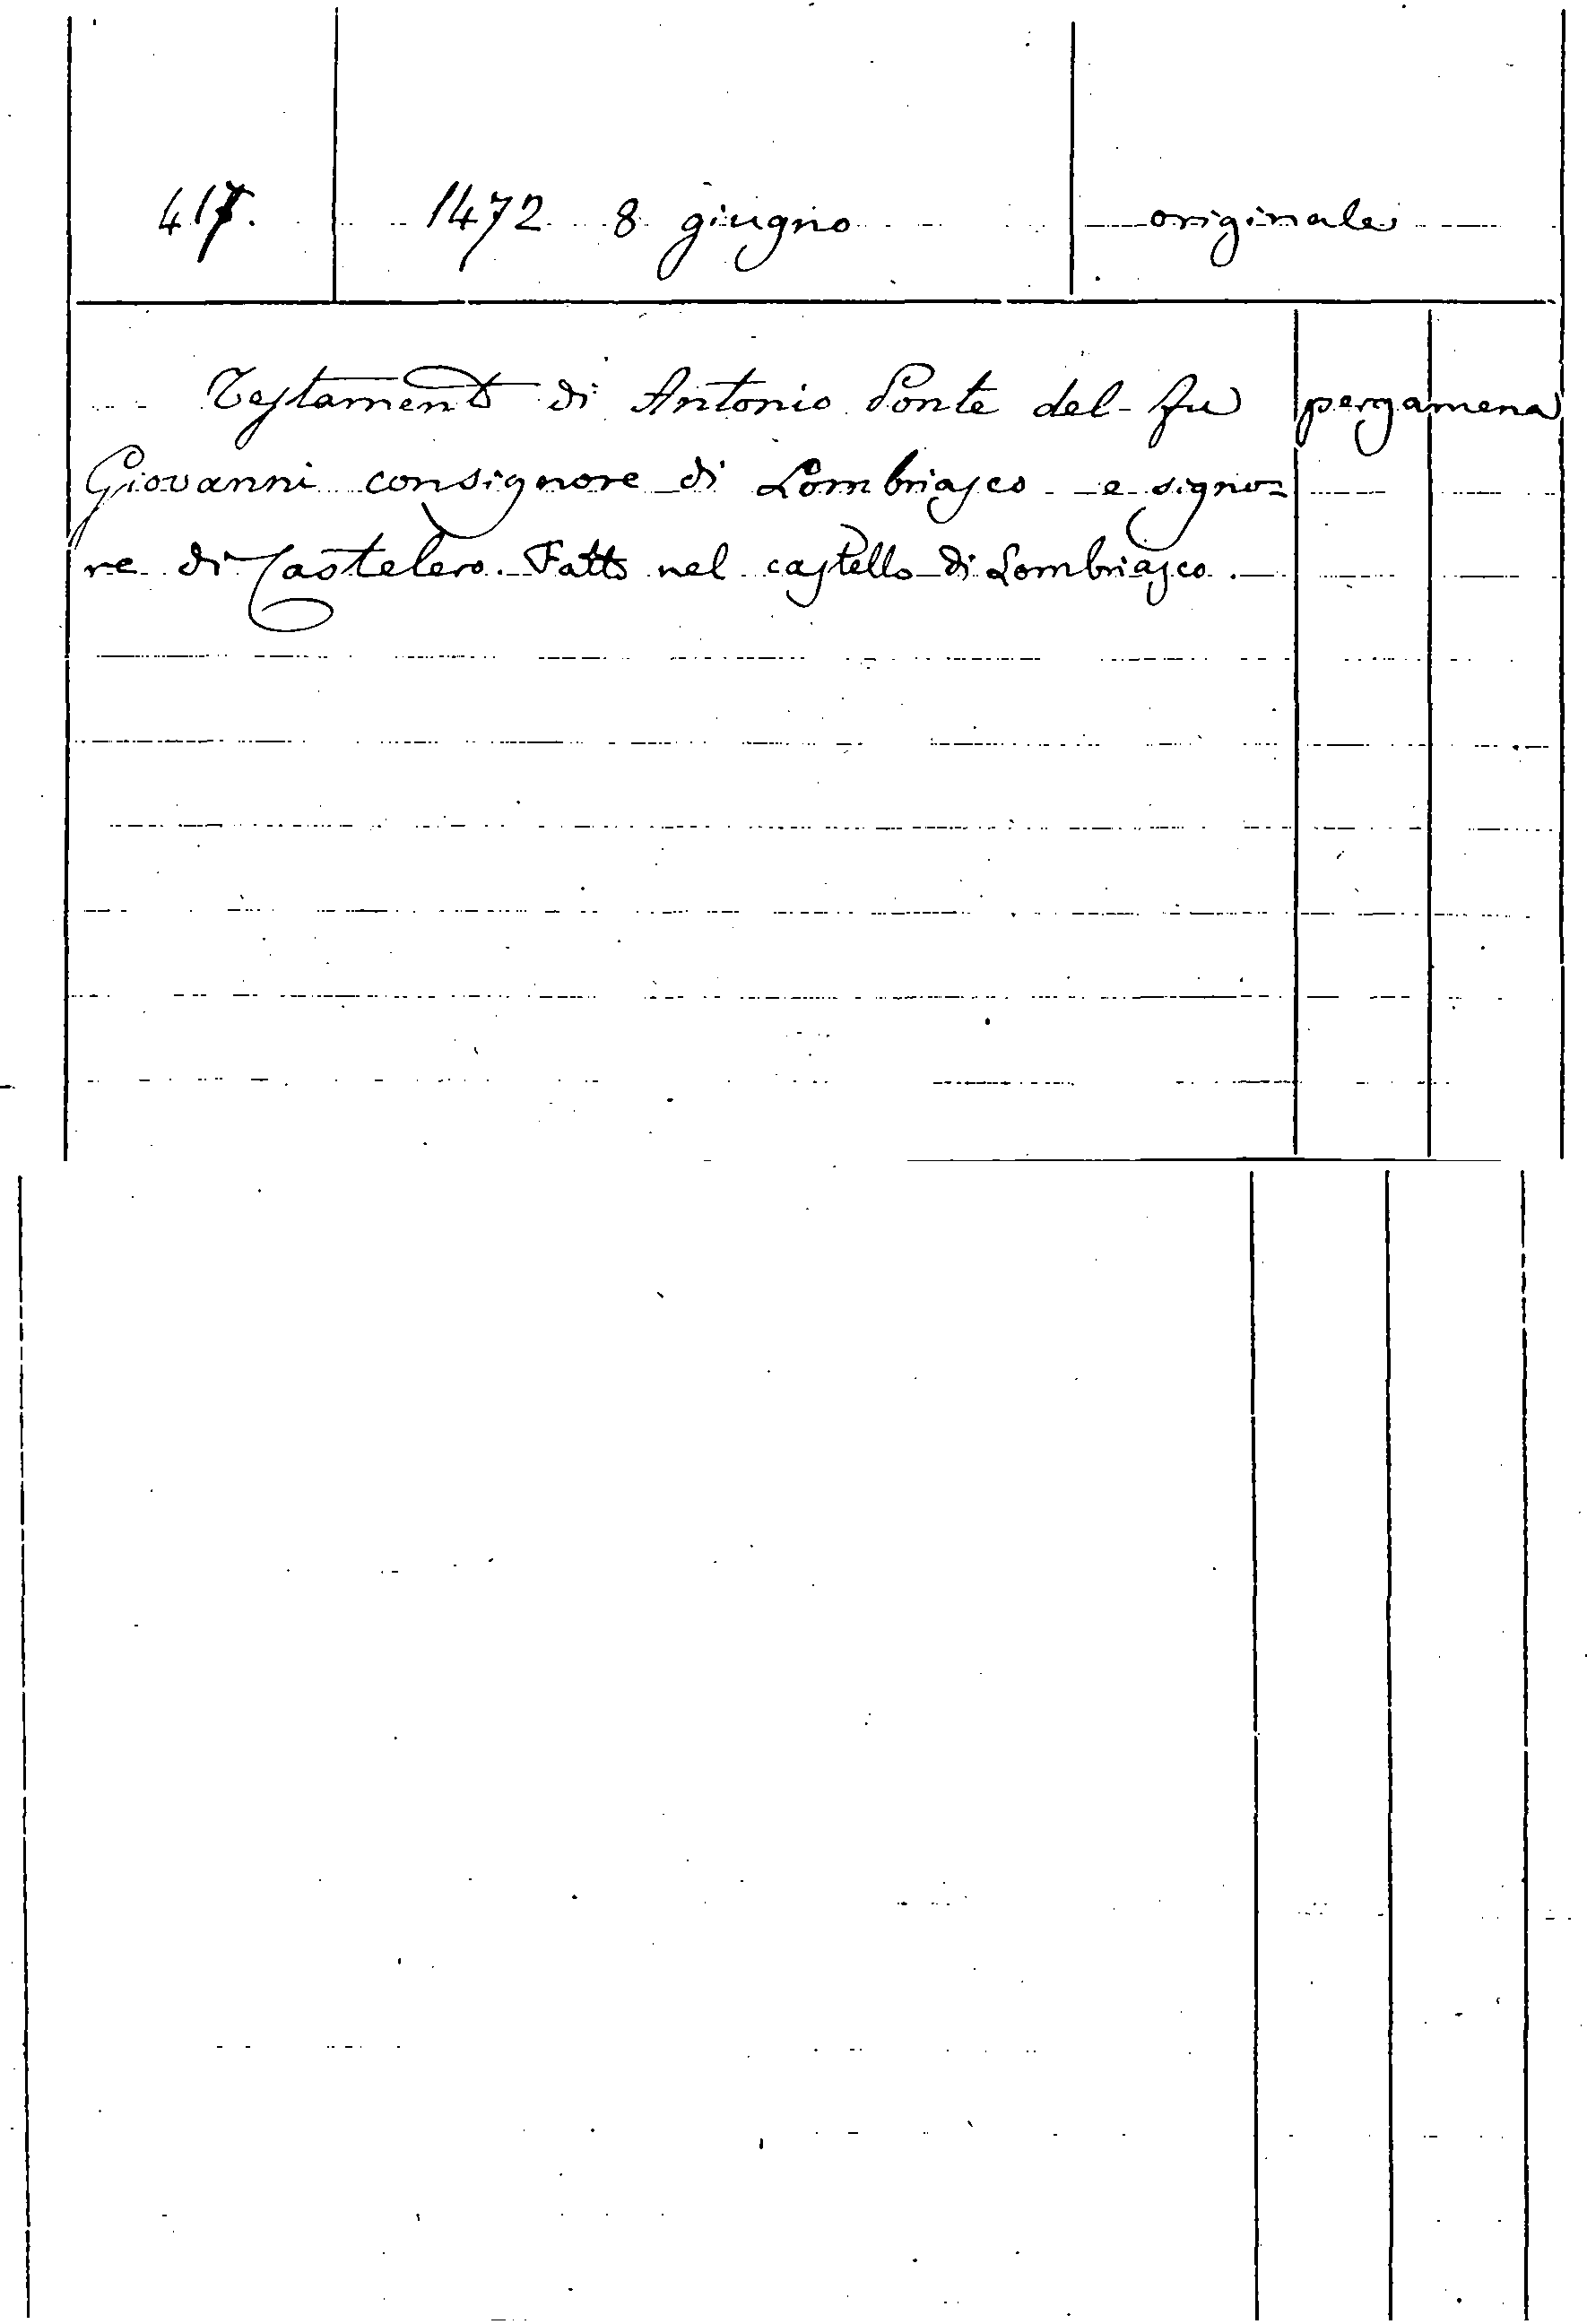 417. 1472 8 giugno originale
Testamento di Antonio Ponte del fu pergamena
Giovanni consignore di Lombriasco e signo=
re di Castelero. Fatto nel castello di Lombriasco.